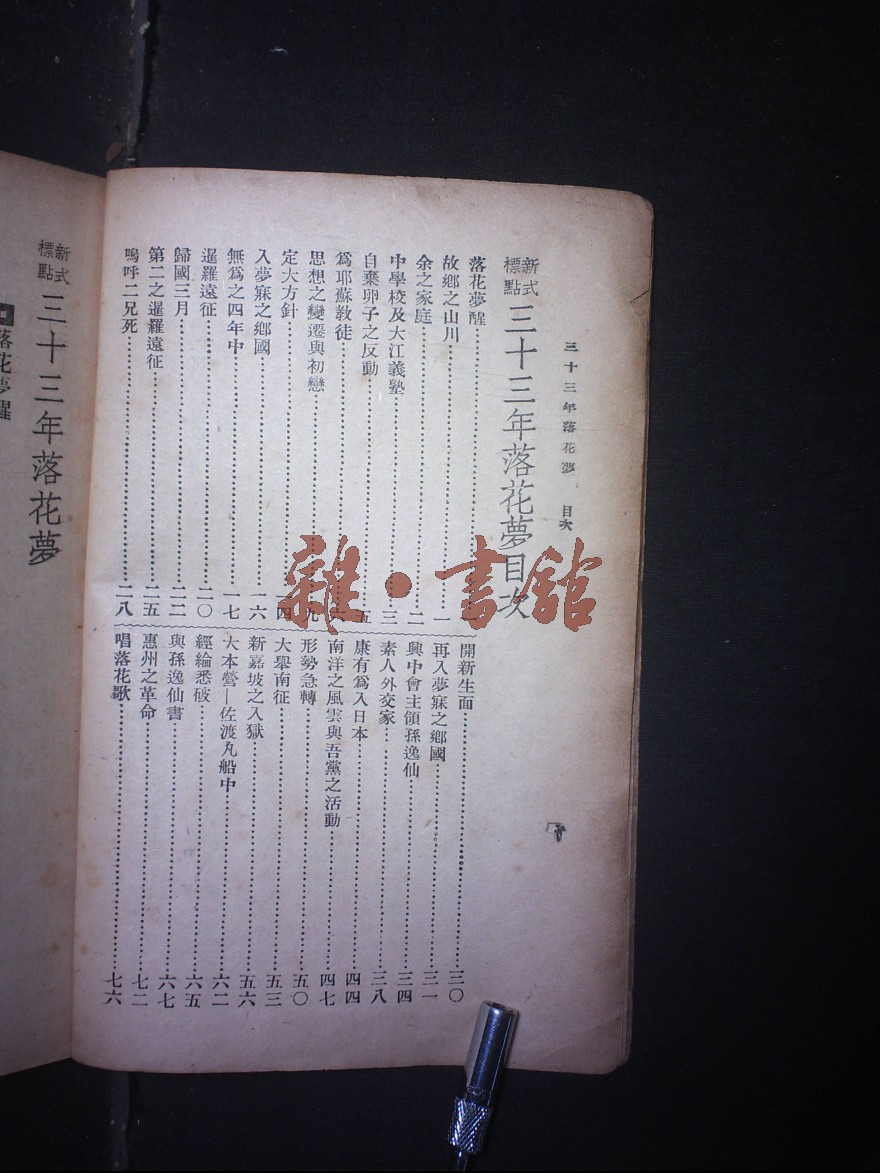 三十三年落花夢 目次
新式標點 三十三年落花夢目次
落花夢醒……一
故鄉之山川……一
余之家庭……二
中學校及大江義塾……三
自棄卵子之反動……五
爲耶蘇教徒……
思想之變遷與初戀……九
定大方針……一四
入夢寐之鄉國……一六
無爲之四年中……一七
暹羅遠征……二〇
歸國三月……二二
第二之暹羅遠征……二五
嗚呼二兄死……二八
開新生面……三〇
再入夢寐之鄉國……三一
興中會主領孫逸仙……三四
素人外交家……三八
康有爲入日本……四四
南洋之風雲與吾黨之活動……四七
形勢急轉……五〇
大舉南征……五三
新嘉坡之入獄……五六
大本營—佐渡丸船中……六二
經綸悉破……六五
與孫逸仙書……六七
惠州之革命……七二
唱落花歌……七六
新式標點 三十三年落花夢
落花夢醒
雜·書館